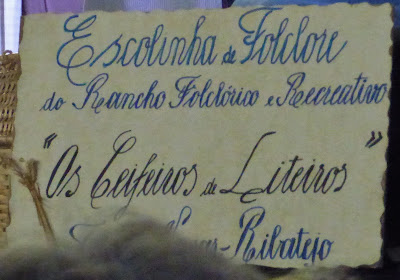 Escolinha de Folclore
do Rancho Folclórico e Recreativo
"Os Ceifeiros de Liteiros"
Ribatejo